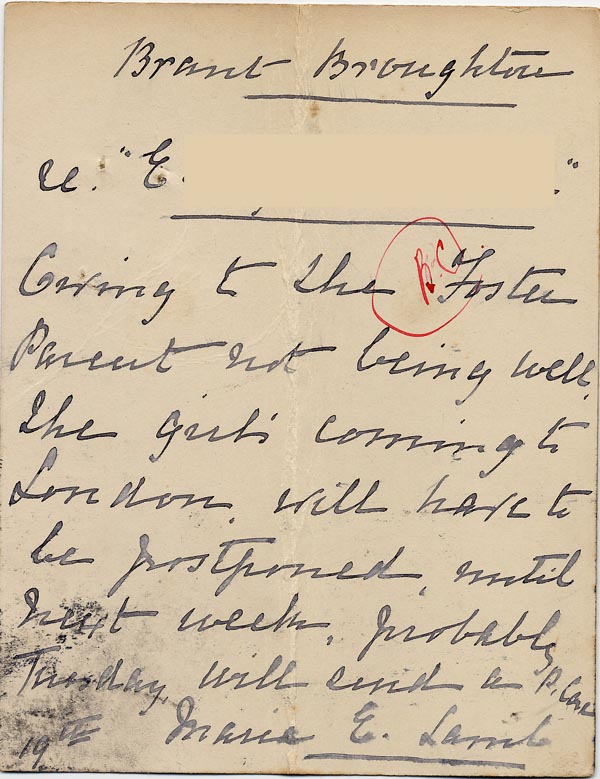 Brant Broughton
re. "E. "
B.C
Owing to the Foster
Parent not being well,
the girl's coming to
London, will have to
be postponed, until
next week, probably
Tuesday, will send a P. Card
19th Maria E. Lamb